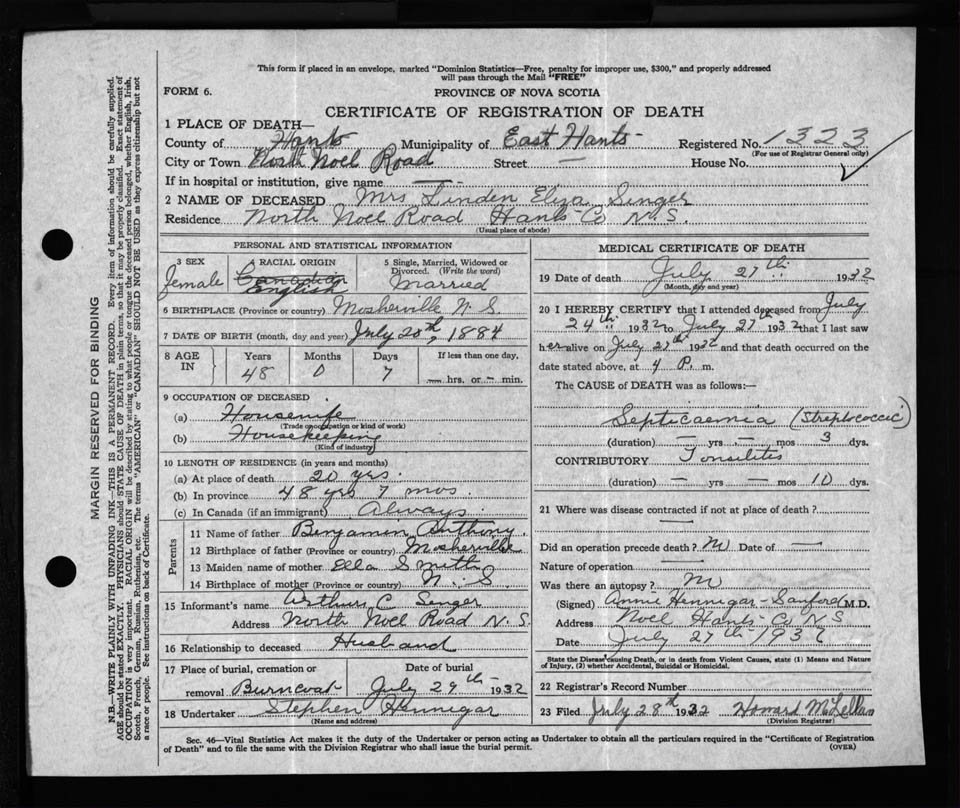 This form if placed in an envelope, marked "Dominion Statistics—Free, penalty for improper use, $300," and properly addressed
will pass through the Mail "FREE"
FORM 6.
PROVINCE OF NOVA SCOTIA
CERTIFICATE OF REGISTRATION OF DEATH
1 PLACE OF DEATH—
County of Hants Municipality of East Hants Registered No. 1323
(For use of Registrar General only)
City or Town North Noel Road Street — House No.
If in hospital or institution, give name —
2 NAME OF DECEASED Mrs Linden Eliza Singer
Residence North Noel Road Hants Co N.S.
(Usual place of abode)
PERSONAL AND STATISTICAL INFORMATION
3 SEX
female
RACIAL ORIGIN
Canadian
English
5 Single, Married, Widowed or
Divorced. (Write the word)
Married
6 BIRTHPLACE (Province or country) Mosherville N.S.
7 DATE OF BIRTH (month, day and year) July 20th, 1884
8 AGE
IN
Years
48
Months
0
Days
7
If less than one day.
— hrs. or — min.
9 OCCUPATION OF DECEASED
(a) Housewife
(Trade occupation or kind of work)
(b) Housekeeping
(Kind of industry)
10 LENGTH OF RESIDENCE (in years and months)
(a) At place of death 20 yrs.
(b) In province 48 yrs 7 mos.
(c) In Canada (if an immigrant) Always
Parents
11 Name of father Benjamin Anthony
12 Birthplace of father (Province or country) Mosherville
13 Maiden name of mother Ella Smith
14 Birthplace of mother (Province or country) N.S.
15 Informant's name Arthur C Singer
Address North Noel Road N.S.
16 Relationship to deceased Husband
17 Place of burial, cremation or
removal Burncoat
Date of burial
July 29th 1932
18 Undertaker Stephen Hennigar
(Name and address)
MEDICAL CERTIFICATE OF DEATH
19 Date of death July 27th 1932
(Month, day and year)
20 I HEREBY CERTIFY that I attended deceased from July
24th 1932 to July 27th 1932 that I last saw
her alive on July 27th 1932 and that death occurred on the
date stated above, at 4 P. m.
The CAUSE OF DEATH was as follows:
Septicaemia (Streptococcic)
(duration) — yrs — mos 3 dys.
CONTRIBUTORY Tonsilitis
(duration) — yrs. — mos 10 dys.
21 Where was disease contracted if not at place of death?
—
Did an operation precede death? Date of —
Nature of operation —
Was there an autopsy?
(Signed) Annie Hennigar-Sanford M.D.
Address Noel Hants Co N S
Date July 27th 1932
State the Disease causing Death, or in death from Violent Causes, state (1) Means and Nature
of Injury, (2) whether Accidental, Suicidal or Homicidal.
22 Registrar's Record Number
23 Filed July 28th 1932 Howard McLellan
(Division Registrar)
Sec. 46—Vital Statistics Act makes it the duty of the Undertaker or person acting as Undertaker to obtain all the particulars required in the "Certificate of Registration
of Death" and to file the same with the Division Registrar who shall issue the burial permit.
(OVER)
MARGIN RESERVED FOR BINDING
N.B.—WRITE PLAINLY WITH UNFADING INK—THIS IS A PERMANENT RECORD. Every item of information should be carefully supplied.
AGE should be stated EXACTLY. PHYSICIANS should STATE CAUSE OF DEATH in plain terms, so that it may be properly classified. Exact statement of
OCCUPATION is very important. RACIAL ORIGIN will be described by stating to what people or tongue the deceased person belonged, whether English, Irish,
Scotch, French, German, Russian, Ruthenian, etc. The terms "AMERICAN" or "CANADIAN" SHOULD NOT BE USED as they express citizenship but not
a race or people. See instructions on back of Certificate.